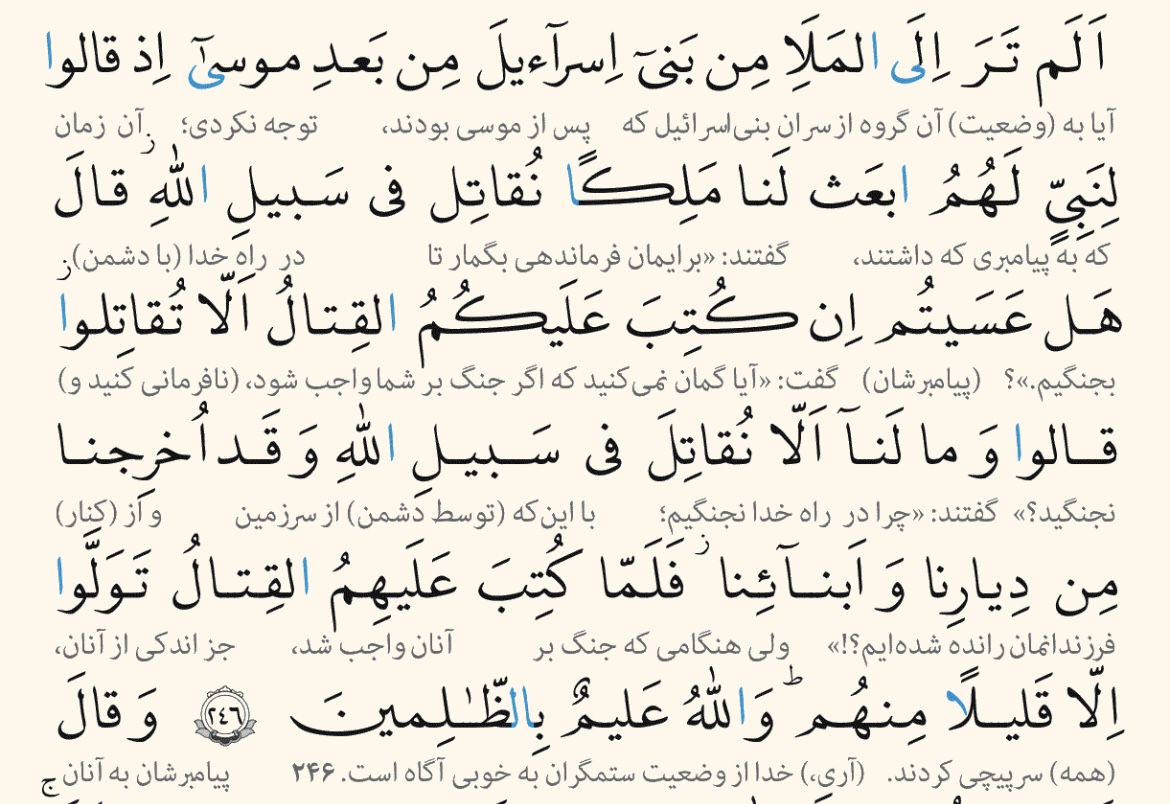 اَلَم تَرَ اِلَى المَلَاِ مِن بَنىٓ اِسرآءيلَ مِن بَعدِ موسىٰٓ اِذ قالوا
آیا به (وضعیت) آن گروه از سران بنی‌اسرائیل که پس از موسی بودند، توجه نکردی؛ آن زمان
لِنَبِيٍّ لَهُمُ ابعَث لَنا مَلِكًا نُقاتِل فى سَبيلِ اللّٰهِ ز قالَ
که به پیامبری که داشتند، گفتند: «برایمان فرماندهی بگمار تا در راه خدا (با دشمن)
هَل عَسَيتُم اِن كُتِبَ عَلَيكُمُ القِتالُ اَلّا تُقاتِلوا ز
بجنگیم.»؟ (پیامبرشان) گفت: «آیا گمان نمی‌کنید که اگر جنگ بر شما واجب شود، (نافرمانی کنید و)
قالوا وَ ما لَنآ اَلّا نُقاتِلَ فى سَبيلِ اللّٰهِ وَ قَد اُخرِجنا
نجنگید؟» گفتند: «چرا در راه خدا نجنگیم؛ با این‌که (توسط دشمن) از سرزمین و از (کنار)
مِن دِيارِنا وَ اَبنآئِنا ز فَلَمّا كُتِبَ عَلَيهِمُ القِتالُ تَوَلَّوا
فرزندانمان رانده شده‌ایم؟!» ولی هنگامی که جنگ بر آنان واجب شد، جز اندکی از آنان،
اِلّا قَليلًا مِنهُم ط وَاللّٰهُ عَليمٌ بِالظّٰلِمينَ ٢٤٦ وَ قالَ
(همه) سرپیچی کردند. (آری،) خدا از وضعیت ستمگران به خوبی آگاه است. ۲۴۶ پیامبرشان به آنان ج